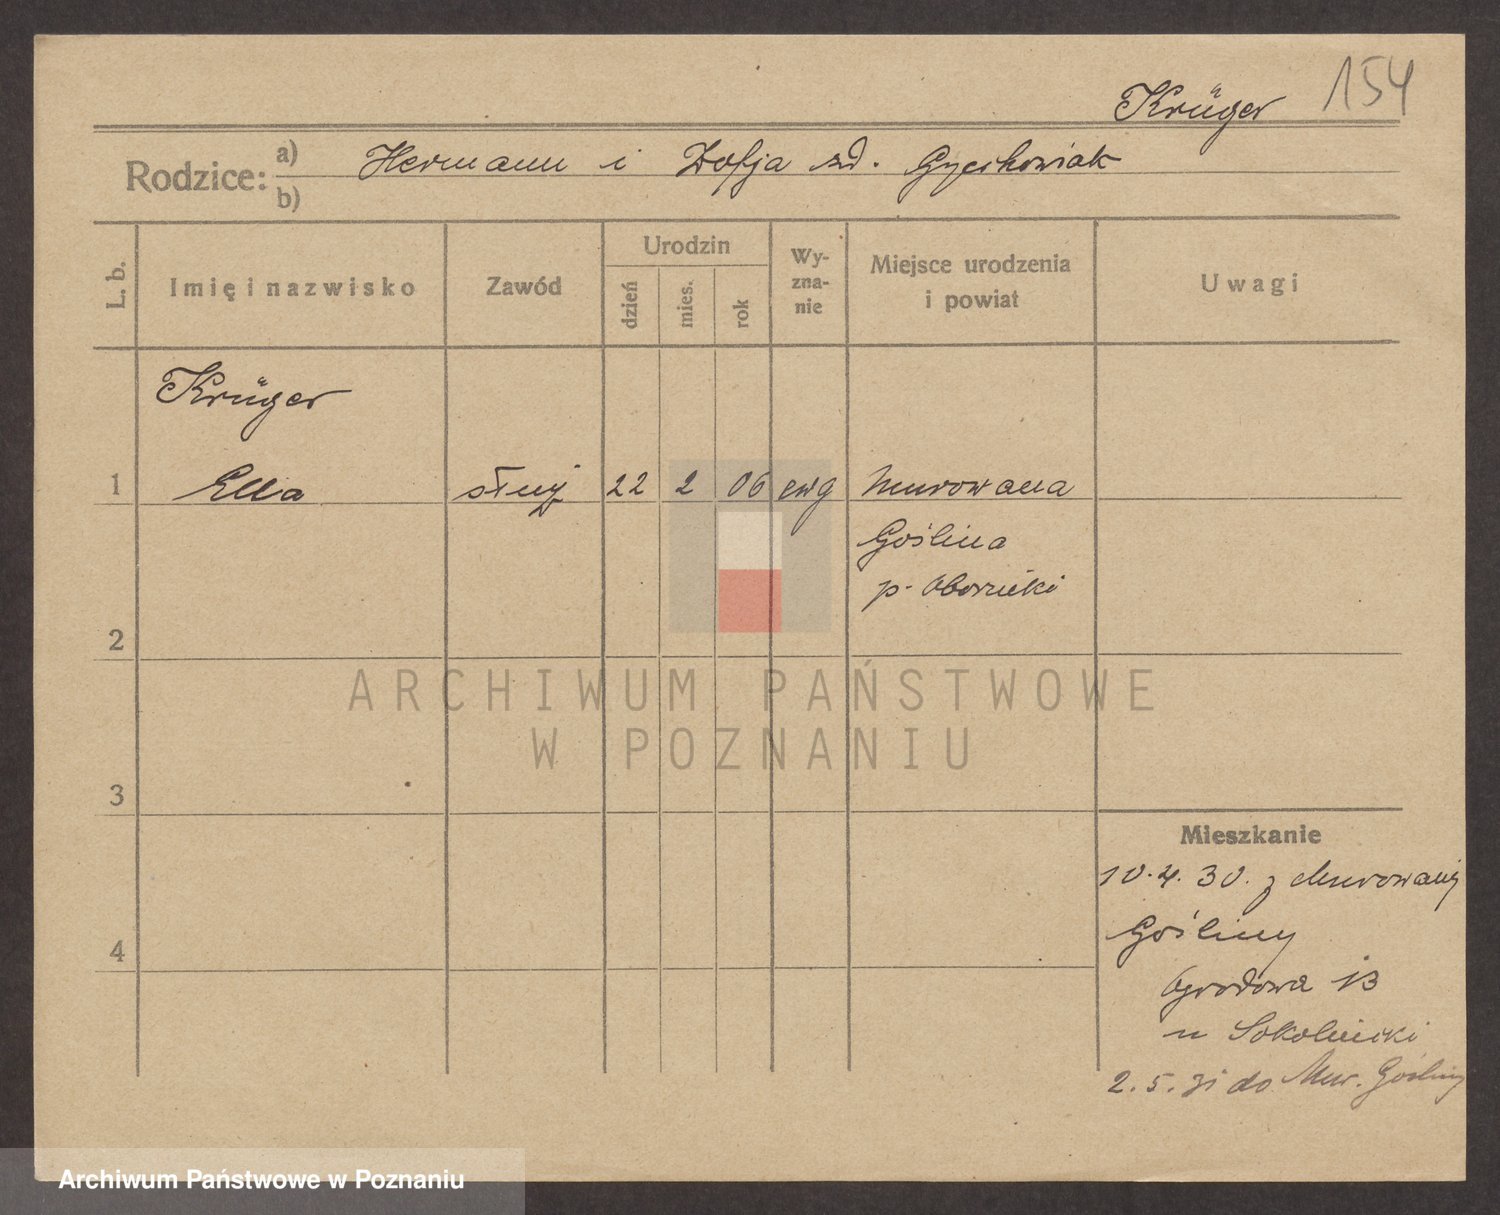 154
Krüger
Rodzice: a) Hermann i Zofja zd. Gzechowiak
b)
L. b. Imię i nazwisko Zawód Urodzin dzień mies. rok Wyznanie Miejsce urodzenia i powiat Uwagi
Krüger
1 Ella służ 22 2 06 ewg Murowana
Goślina
p. Obornicki
2
ARCHIWUM PAŃSTWOWE
W POZNANIU
3
Mieszkanie
10.4.30. z Murowanej
Gośliny
4
Ogrodowa 13
u Sokolnicki
2.5.31 do Mur. Gośliny
Archiwum Państwowe w Poznaniu